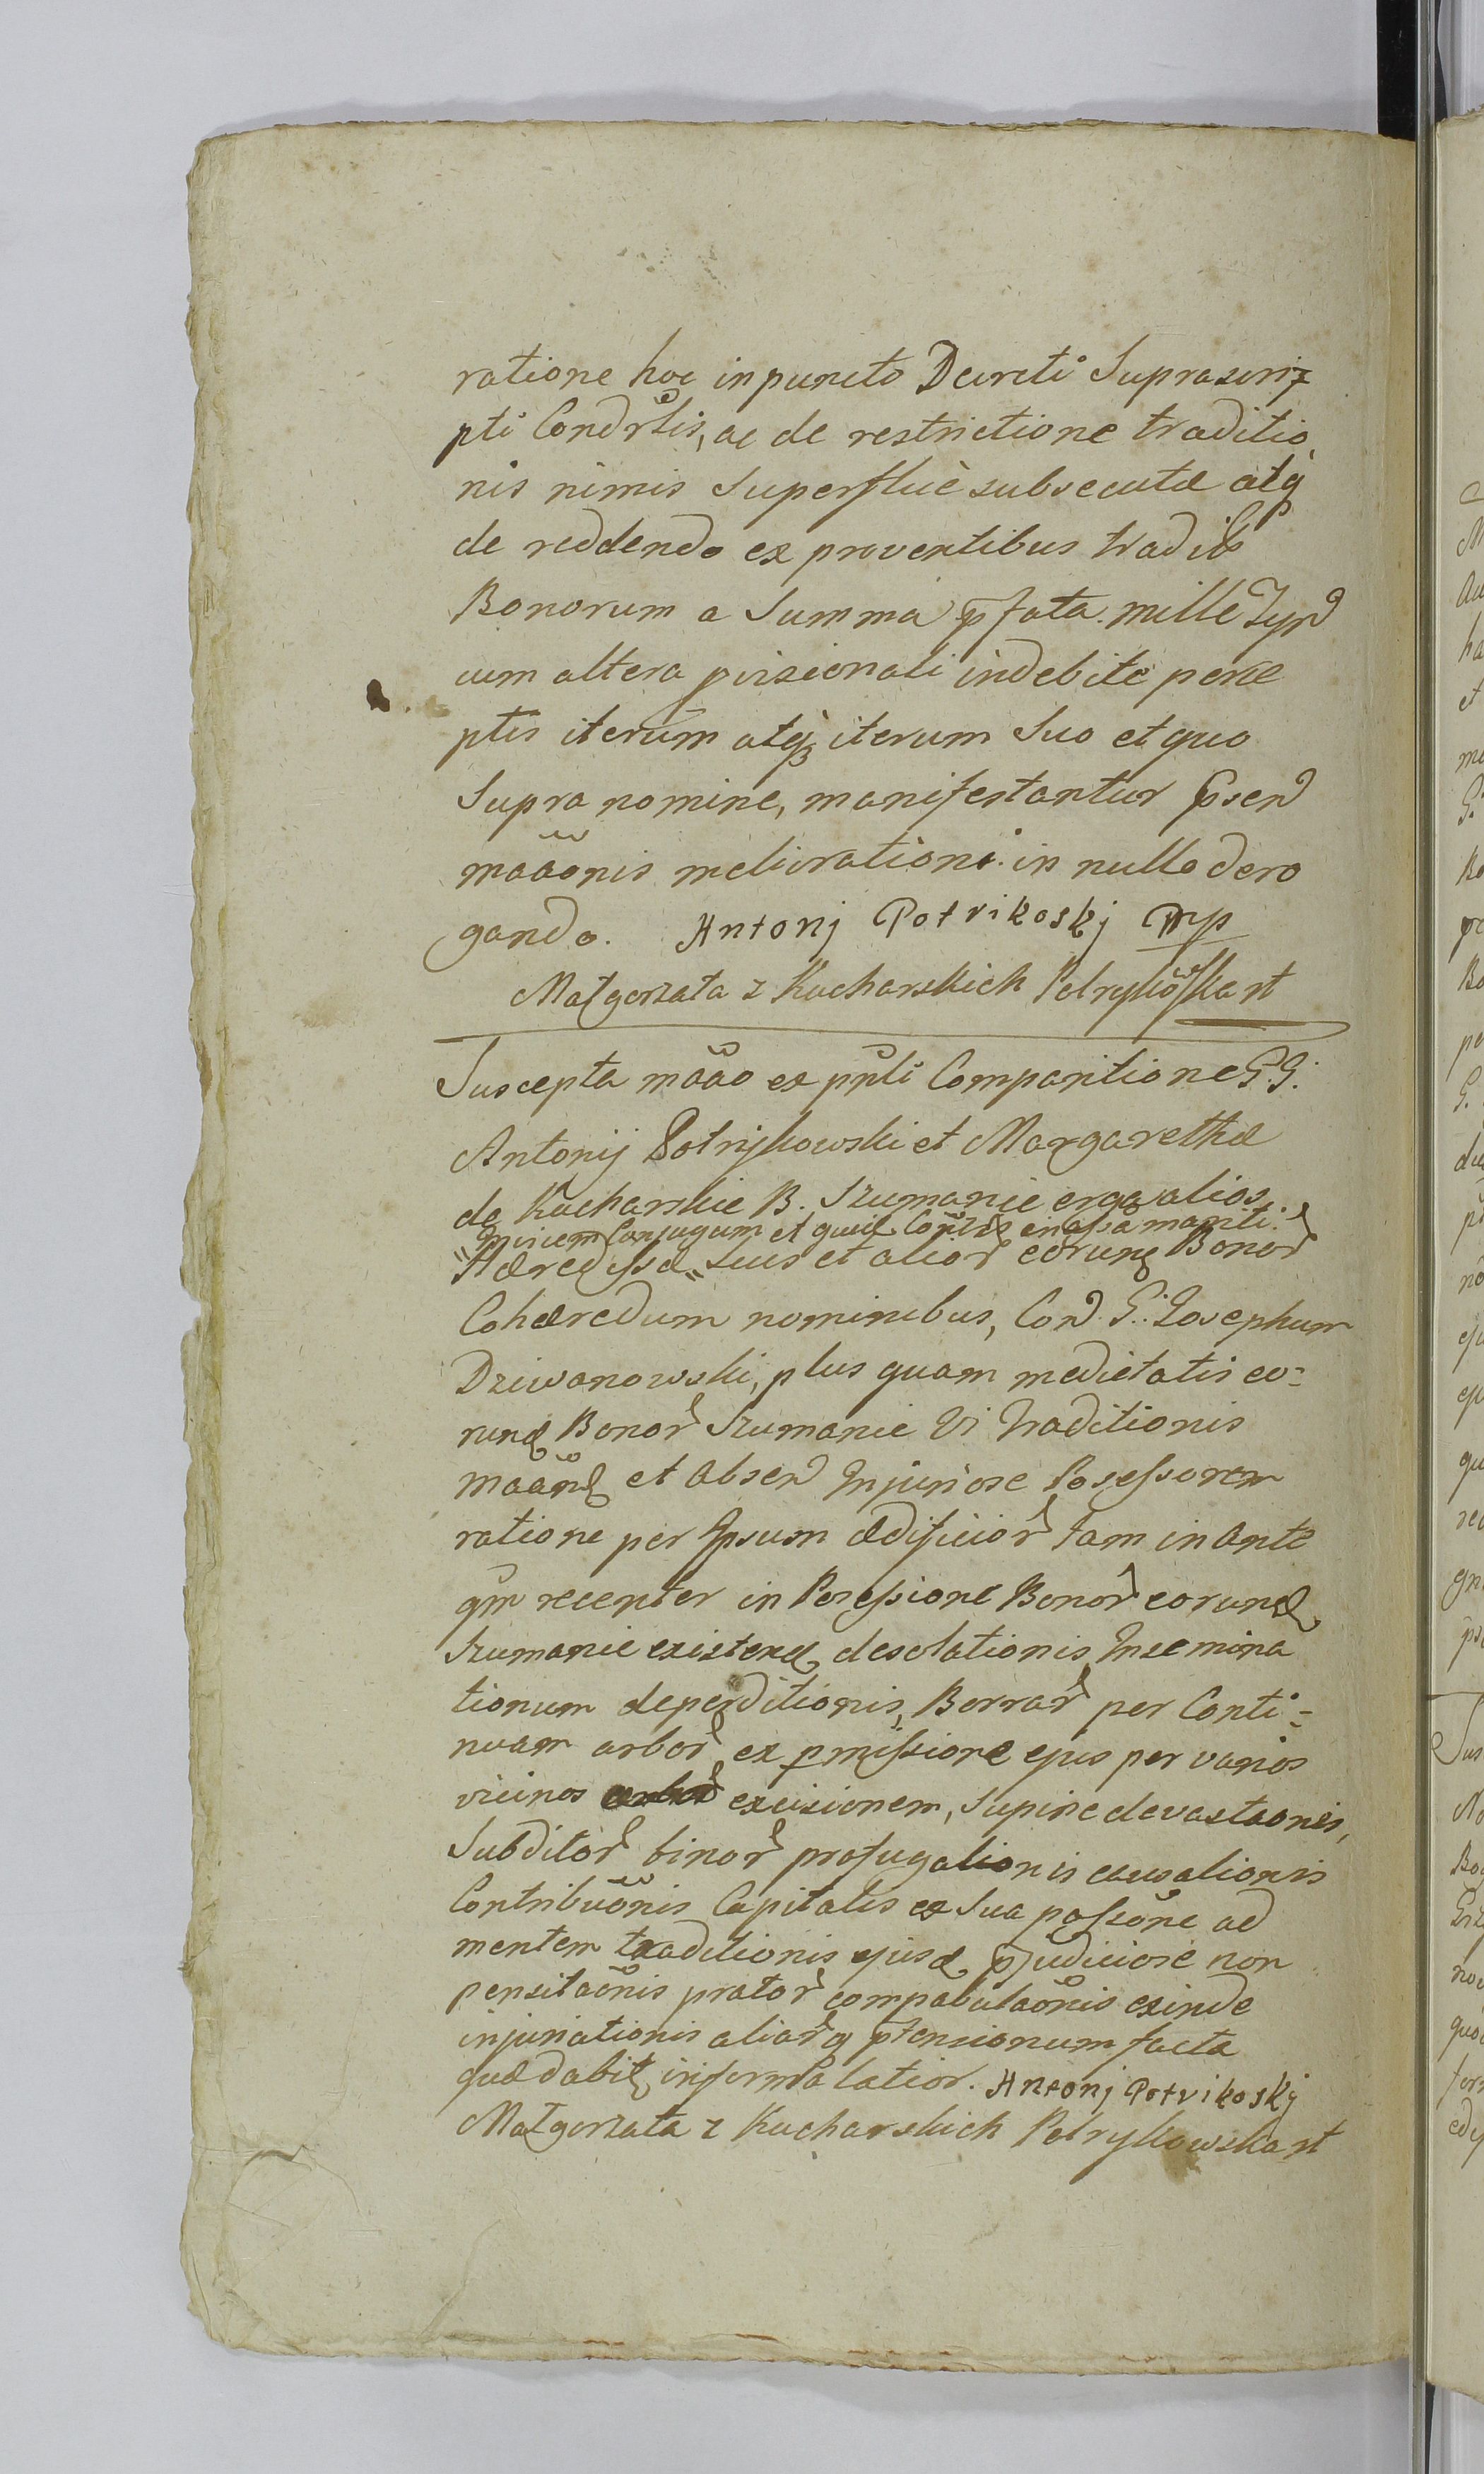 ratione hoc in puncto Decreti Suprascri
pti Condrlis, ac de restrictione traditio
nis nimis Superflue subsecutæ atq
de reddendo ex proventibus tradit
Bonorum a Summa pfata mille Tyn
cum altera provisionali indebite perce
ptis iterum atq iterum Suo et quo
Supra nomine, manifestantur psen
maaonis meliorationi in nullo dero
gando. Antonj Potrikoskj mp
Małgorzata z Kucharskich Petrykoska st
Suscepta maao ex pnli Comparitione G.G.
Antonij Potrykowski et Margarethæ
de Kucharskie B. Szumanie erga alios
invicem Conjugum et quid in assa mariti
Hæredissæ suis et alior eorund Bonor
Cohæredum nominibus, Con G. Josephum
Dziwanowski, plus quam medietatis eo-
rund Bonor Szumanie Vi Traditionis
maand et absen Injuriose Possessorem
ratione per Ipsum ædificior tam in ante
qm recenter in Possessione Bonor eorund
Szumanie existend desolationis Insemina
tionum deperditionis, Borrar per Conti-
nuam arbor ex pmissione ejus per varios
vicinos excisionem, Supine devastaonis,
Subditor binor profugationis causationis
Contribuonis Capitalis ex Sua passone ad
mentem traditionis ejusd pjudiciose non
pensitaonis prator compabulaonis exinde
injuriationis aliarq ptensionum facta
quæ dabit informa latior. Antonj Potrikoskj
Małgorzata z Kucharskich Petrykowska st